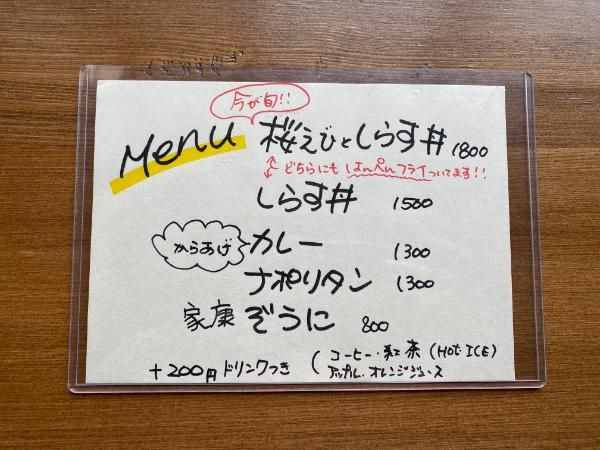 今が旬!!
Menu
桜えびとしらす丼 1800
どちらにも はんぺんフライついてます!!
しらす丼 1500
からあげ カレー 1300
ナポリタン 1300
家康 ぞうに 800
+200円ドリンクつき
コーヒー・紅茶 (HOT・ICE)
アップル・オレンジジュース